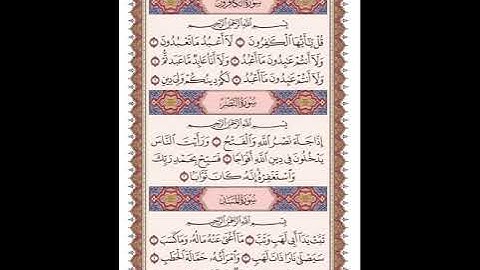 سُورَةُ الكَافِرُونَ
بِسْمِ اللَّهِ الرَّحْمَٰنِ الرَّحِيمِ
قُلْ يَٰٓأَيُّهَا ٱلْكَٰفِرُونَ ۝ لَآ أَعْبُدُ مَا تَعْبُدُونَ ۝
وَلَآ أَنتُمْ عَٰبِدُونَ مَآ أَعْبُدُ ۝ وَلَآ أَنَا۠ عَابِدٌ مَّا عَبَدتُّمْ ۝
وَلَآ أَنتُمْ عَٰبِدُونَ مَآ أَعْبُدُ ۝ لَكُمْ دِينُكُمْ وَلِىَ دِينِ ۝
سُورَةُ النَّصْرِ
بِسْمِ اللَّهِ الرَّحْمَٰنِ الرَّحِيمِ
إِذَا جَآءَ نَصْرُ ٱللَّهِ وَٱلْفَتْحُ ۝ وَرَأَيْتَ ٱلنَّاسَ
يَدْخُلُونَ فِى دِينِ ٱللَّهِ أَفْوَاجًا ۝ فَسَبِّحْ بِحَمْدِ رَبِّكَ
وَٱسْتَغْفِرْهُ إِنَّهُۥ كَانَ تَوَّابًۢا ۝
سُورَةُ المَسَدِ
بِسْمِ اللَّهِ الرَّحْمَٰنِ الرَّحِيمِ
تَبَّتْ يَدَآ أَبِى لَهَبٍ وَتَبَّ ۝ مَآ أَغْنَىٰ عَنْهُ مَالُهُۥ وَمَا كَسَبَ ۝
سَيَصْلَىٰ نَارًا ذَاتَ لَهَبٍ ۝ وَٱمْرَأَتُهُۥ حَمَّالَةَ ٱلْحَطَبِ ۝